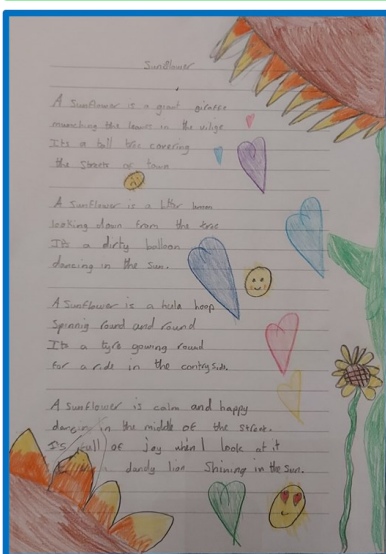 Sunflower
A Sunflower is a giant giraffe
munching the leaves in the vilige
Its a tall tree covering
the Streets or town
A sunflower is a
looking down from the tree
Its a dirty balloon
dancing in the Sun.
A Sunflower is a hula hoop
Spinnig round and round
Its a tyre gowing round
for a ride in the contrySide.
A Sunflower is calm and happy
dancing in the middle of the Street.
Its full of joy when I look at it
a dandy lion Shining in the Sun.